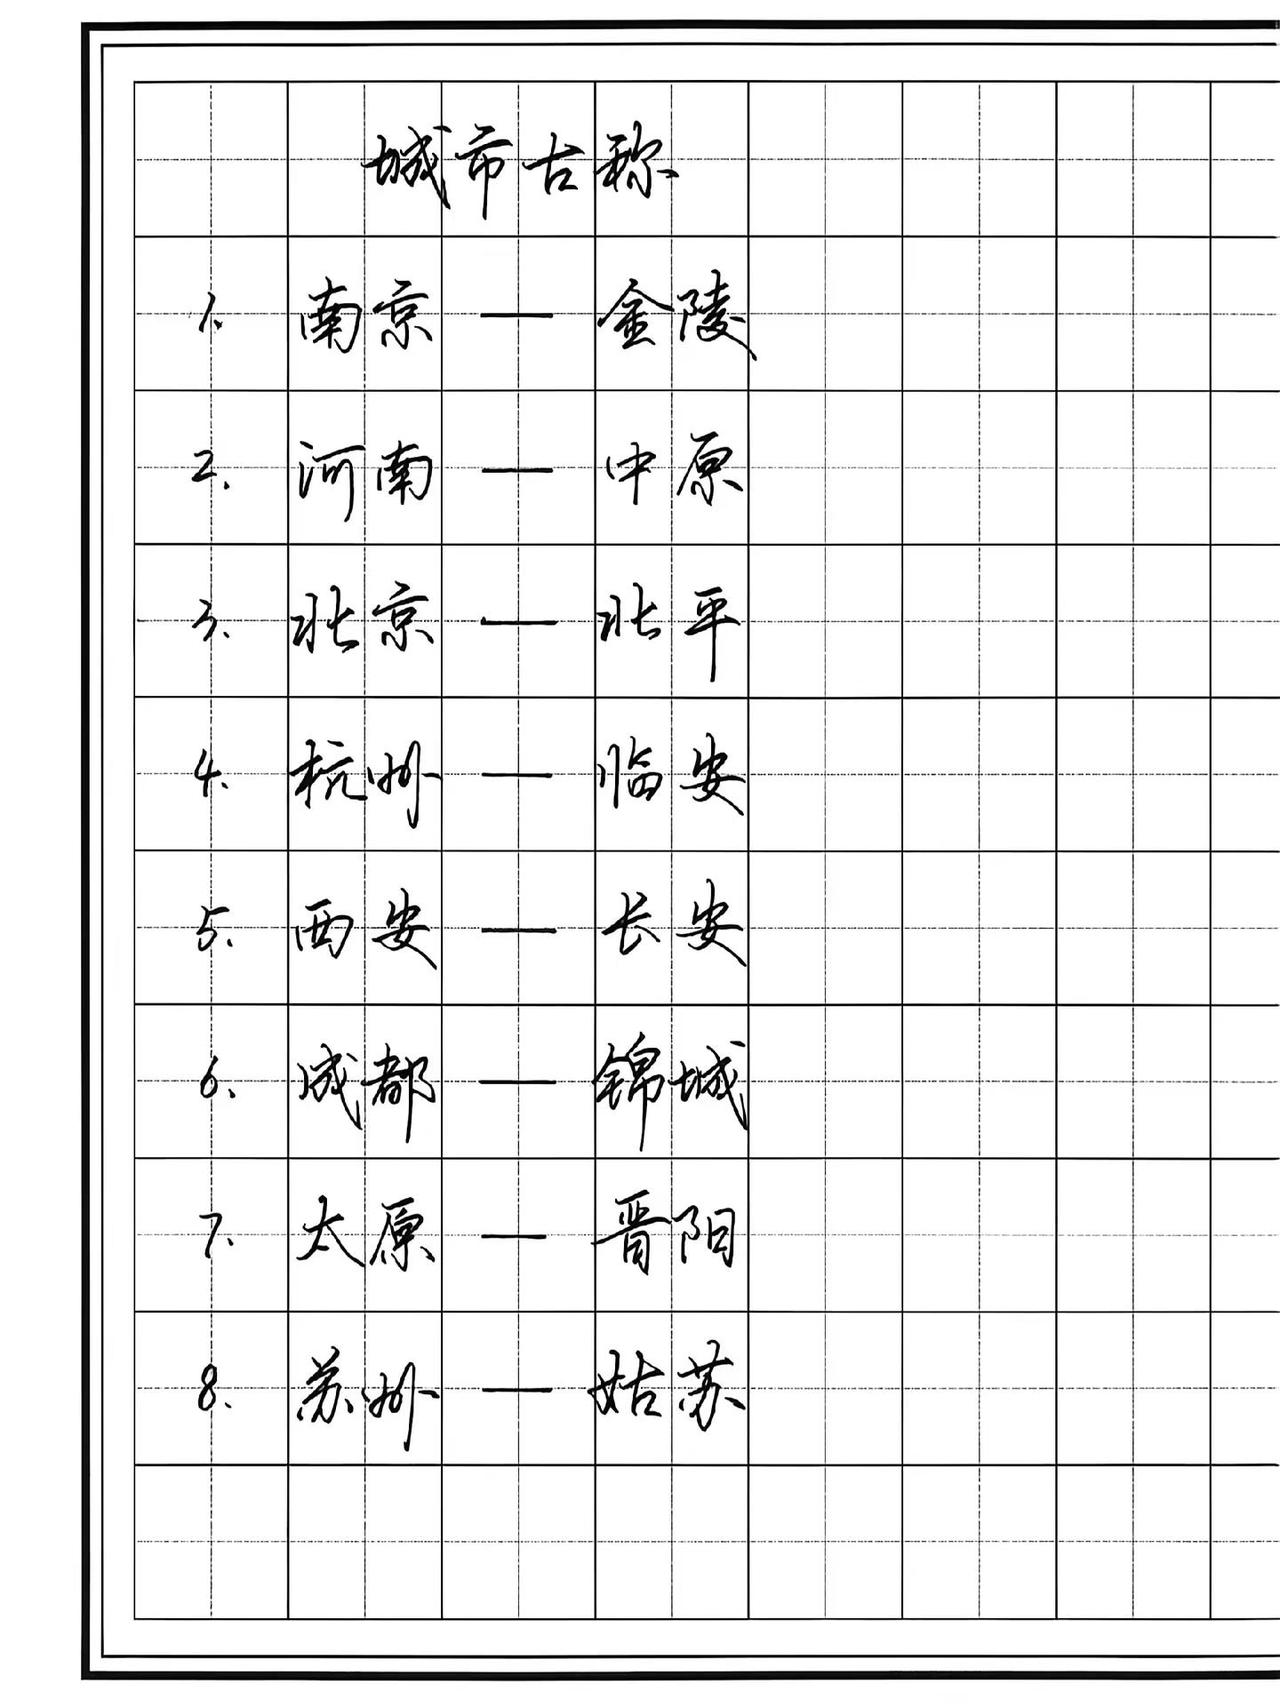 城市古称
1. 南京 — 金陵
2. 河南 — 中原
3. 北京 — 北平
4. 杭州 — 临安
5. 西安 — 长安
6. 成都 — 锦城
7. 太原 — 晋阳
8. 苏州 — 姑苏